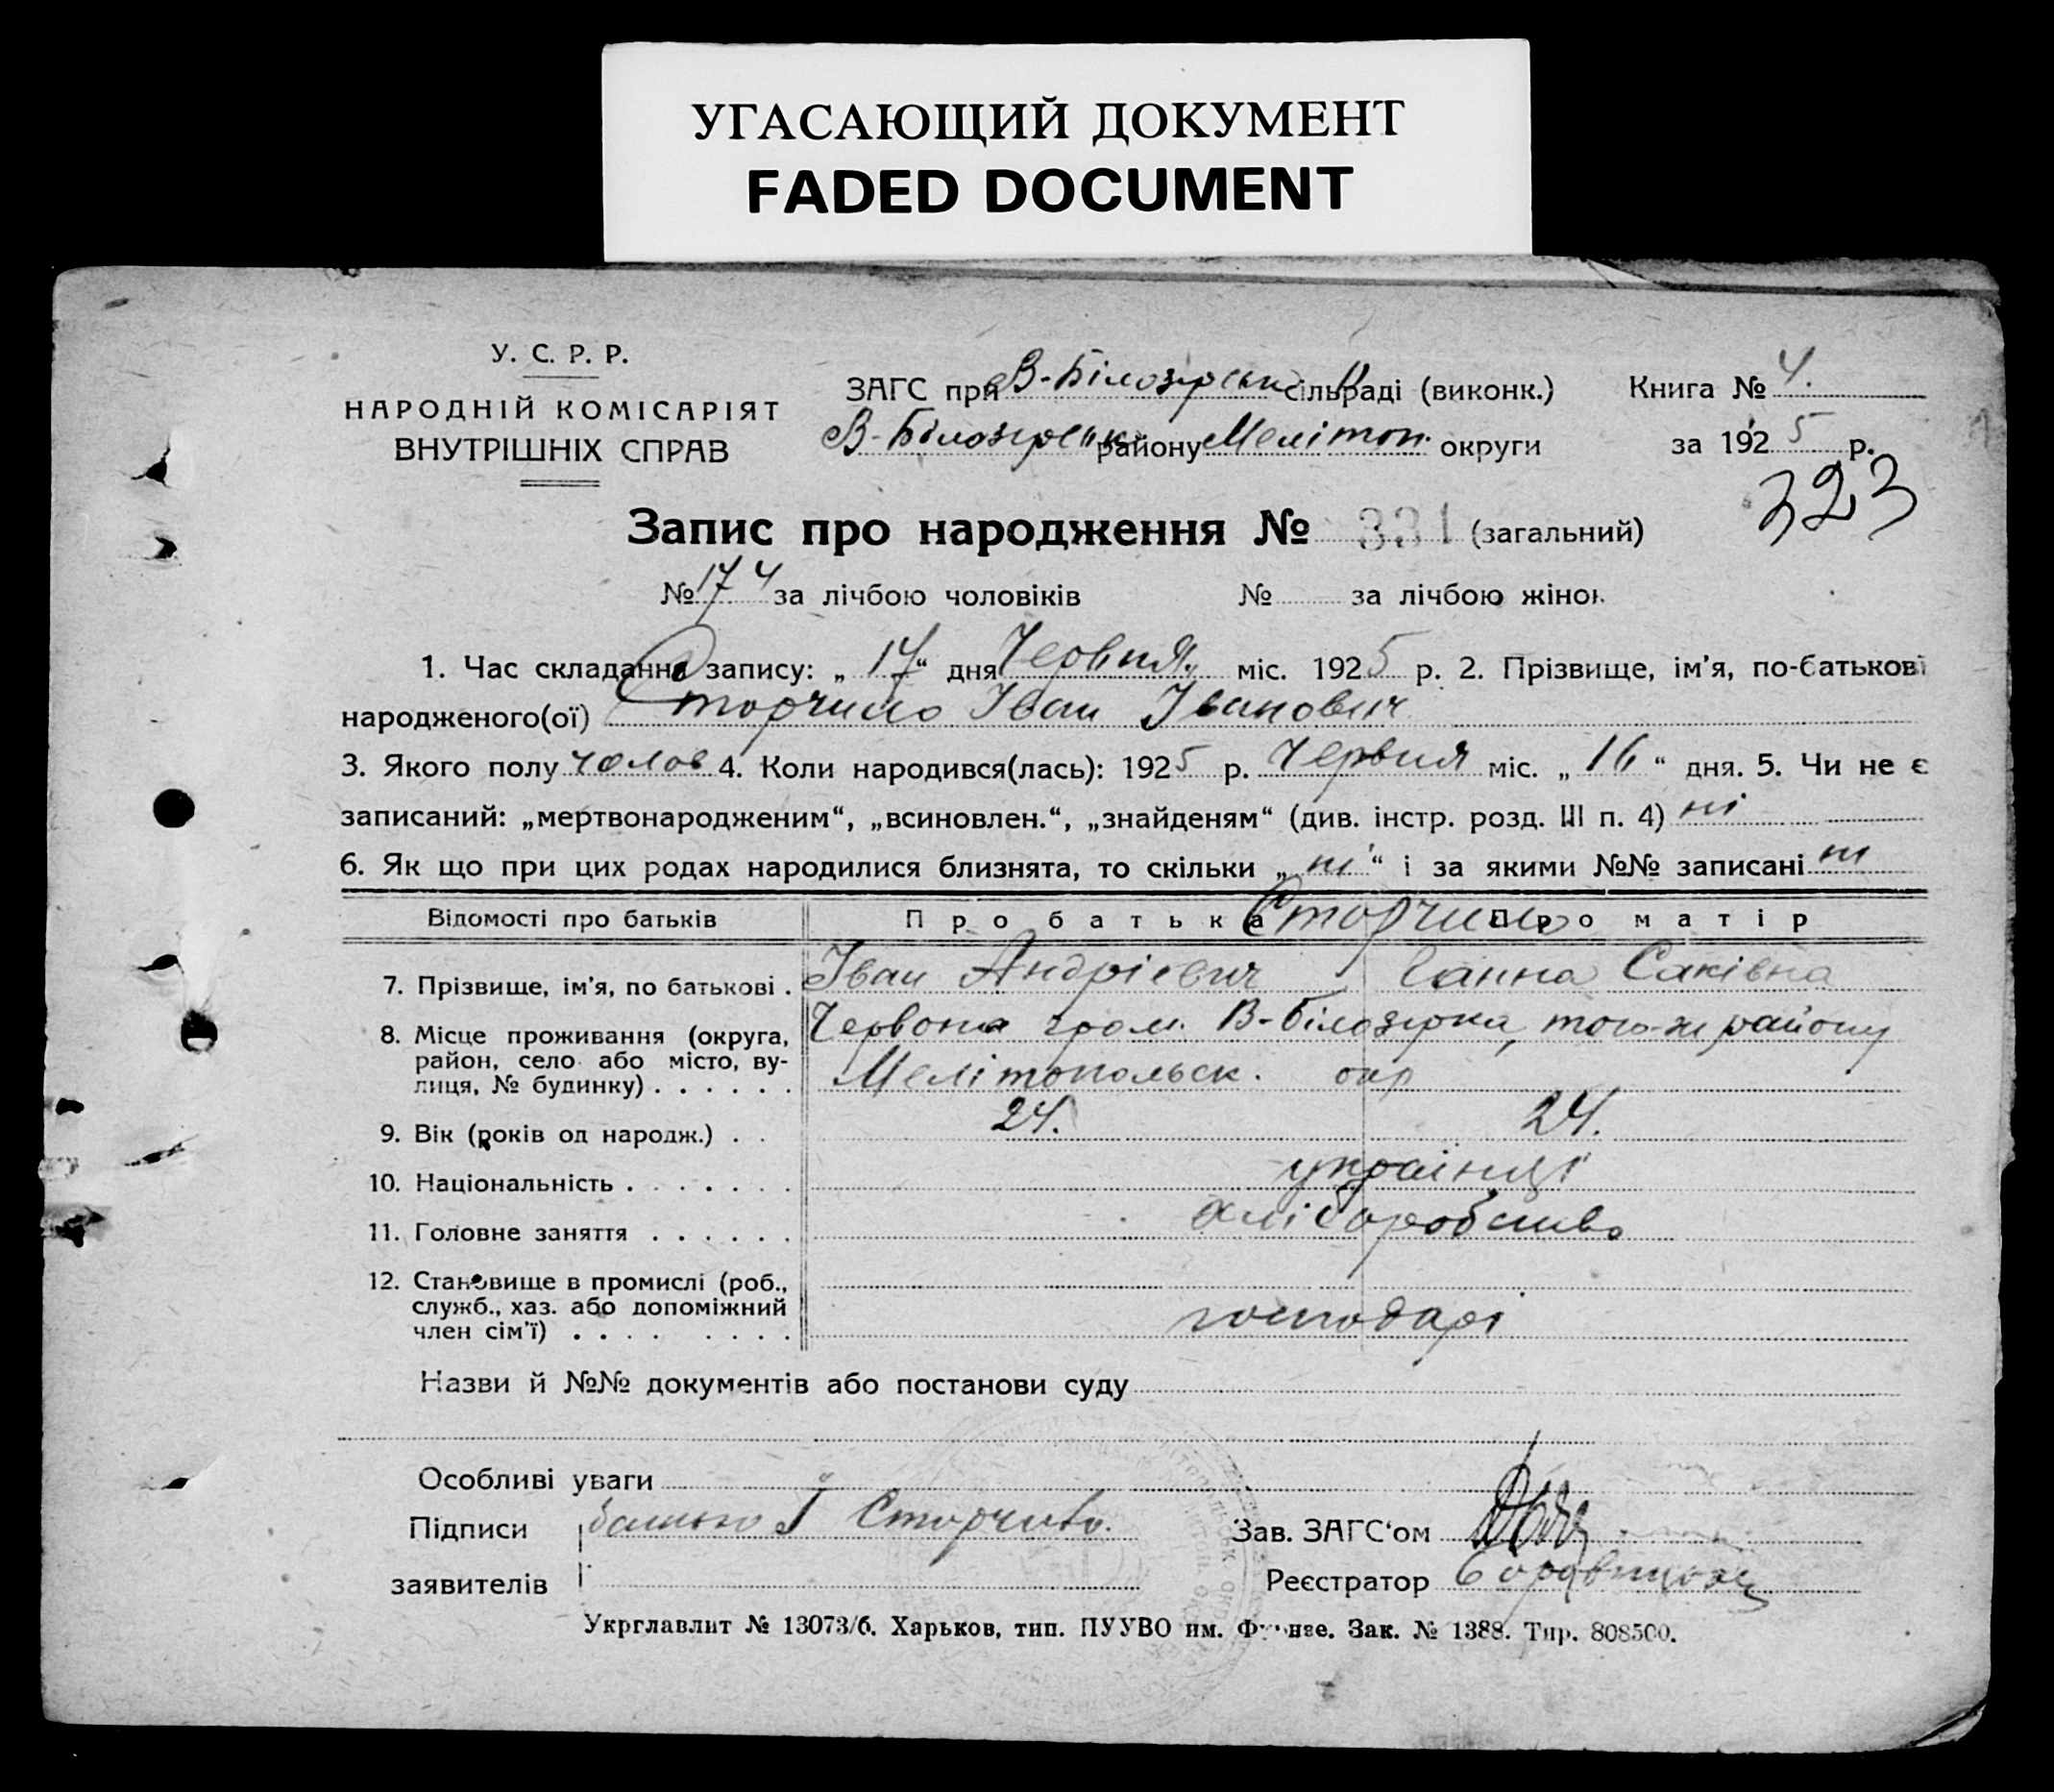 УГАСАЮЩИЙ ДОКУМЕНТ
FADED DOCUMENT
У. С. Р. Р.
НАРОДНІЙ КОМІСАРІЯТ
ВНУТРІШНІХ СПРАВ
ЗАГС при В-Білозірській сільраді (виконк.)
В-Білозірськ району Мелітоп. округи
Книга № 4.
за 1925 р.
323
Запис про народження № 331 (загальний)
№ 174 за лічбою чоловіків № за лічбою жінок
1. Час складання запису: „ 17 “ дня Червня міс. 1925 р. 2. Прізвище, ім’я, по-батькові
народженого(ої) Сторчило Іван Іванович
3. Якого полу чолов 4. Коли народився(лась): 1925 р. Червня міс. „ 16 “ дня. 5. Чи не є
записаний: „мертвонародженим“, „всиновлен.“, „знайденям“ (див. інстр. розд. III п. 4) ні
6. Як що при цих родах народилися близнята, то скільки „ ні “ і за якими №№ записані ні
Відомості про батьків Про батька Сторчило Про матір
7. Прізвище, ім’я, по батькові . Іван Андрієвич Ганна Саківна
8. Місце проживання (округа, Червона гром. В-Білозірка, того-ж району
район, село або місто, ву-
лиця, № будинку) . . . . . . Мелітопольск. окр
9. Вік (років од народж.) . . 24. 24.
10. Національність . . . . . . . українці
11. Головне заняття . . . . . . хліборобство
12. Становище в промислі (роб.,
служб., хаз. або допоміжний
член сім’ї) . . . . . . . . господарі
Назви й №№ документів або постанови суду
Особливі уваги
Підписи батько І Сторчило. Зав. ЗАГС‘ом
заявителів Реєстратор
Укрглавлит № 13073/б. Харьков, тип. ПУУВО им. Фрунзе. Зак. № 1388. Тир. 808500.